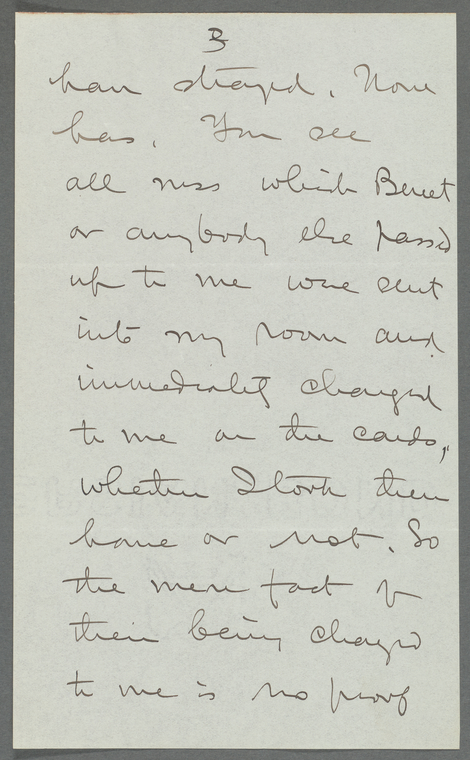 3
have strayed. None
has. You see
all mss which Benet
or anybody else passed
up to me were sent
into my room and
immediately charged
to me on the cards,
whether I took them
home or not. So
the mere fact of
their being charged
to me is no proof